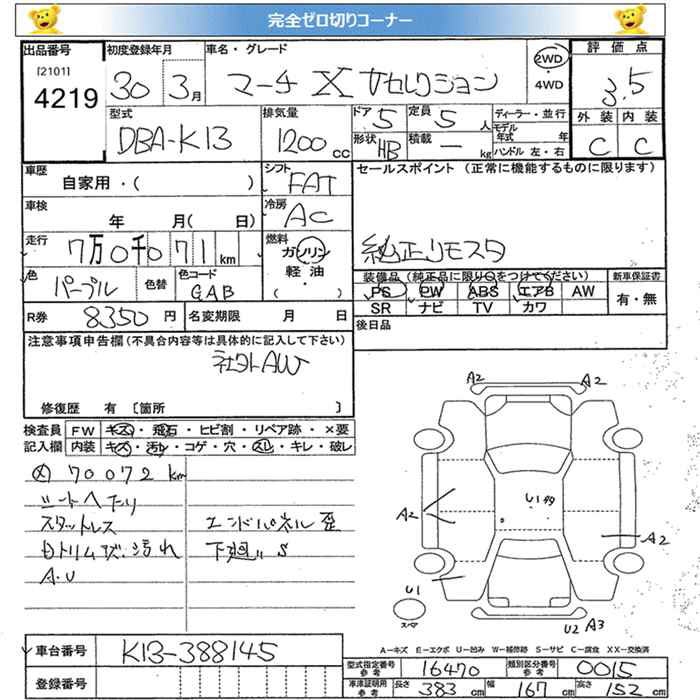 完全ゼロ切りコーナー
出品番号 初度登録年月 車名・グレード 2WD・4WD 評価点
[2101]
4219 30 3月 マーチ X Vセレクション 3.5
型式 排気量 ドア 5 定員 5人 ディーラー・並行 外装 内装
DBA-K13 1200cc 形状 HB 積載 ー kg モデル年式 年 ハンドル 左・右 C C
車歴 自家用・( ) シフト FAT セールスポイント (正常に機能するものに限ります)
車検 年 月( 日) 冷房 AC
走行 7万0千071km 燃料 ガソリン・軽油・( ) 純正リモスタ
色 パープル 色替 色コード GAB 装備品(純正品に限り○をつけてください) 新車保証書
PS PW ABS エアB AW 有・無
SR ナビ TV カワ
R券 8350円 名変期限 月 日 後日品
注意事項申告欄(不具合内容等は具体的に記入して下さい)
社外AW
修復歴 有 [箇所 ]
検査員記入欄 FW キズ・飛石・ヒビ割・リペア跡・×要
内装 キズ・汚れ・コゲ・穴・スレ・キレ・破レ
メ 70072km
シートヘタリ
スタットレス エンドパネル歪
内トリムズ・汚れ 下廻りS
A・U
A2 A2
U1
A2 A2
U1
スペア U2 A3
A－キズ E－エクボ U－凹み W－補修跡 S－サビ C－腐食 XX－交換済
車台番号 K13-388145
登録番号
型式指定番号 参考 16470 類別区分番号 参考 0015
車庫証明用 参考 長さ 383cm 幅 167cm 高さ 152cm